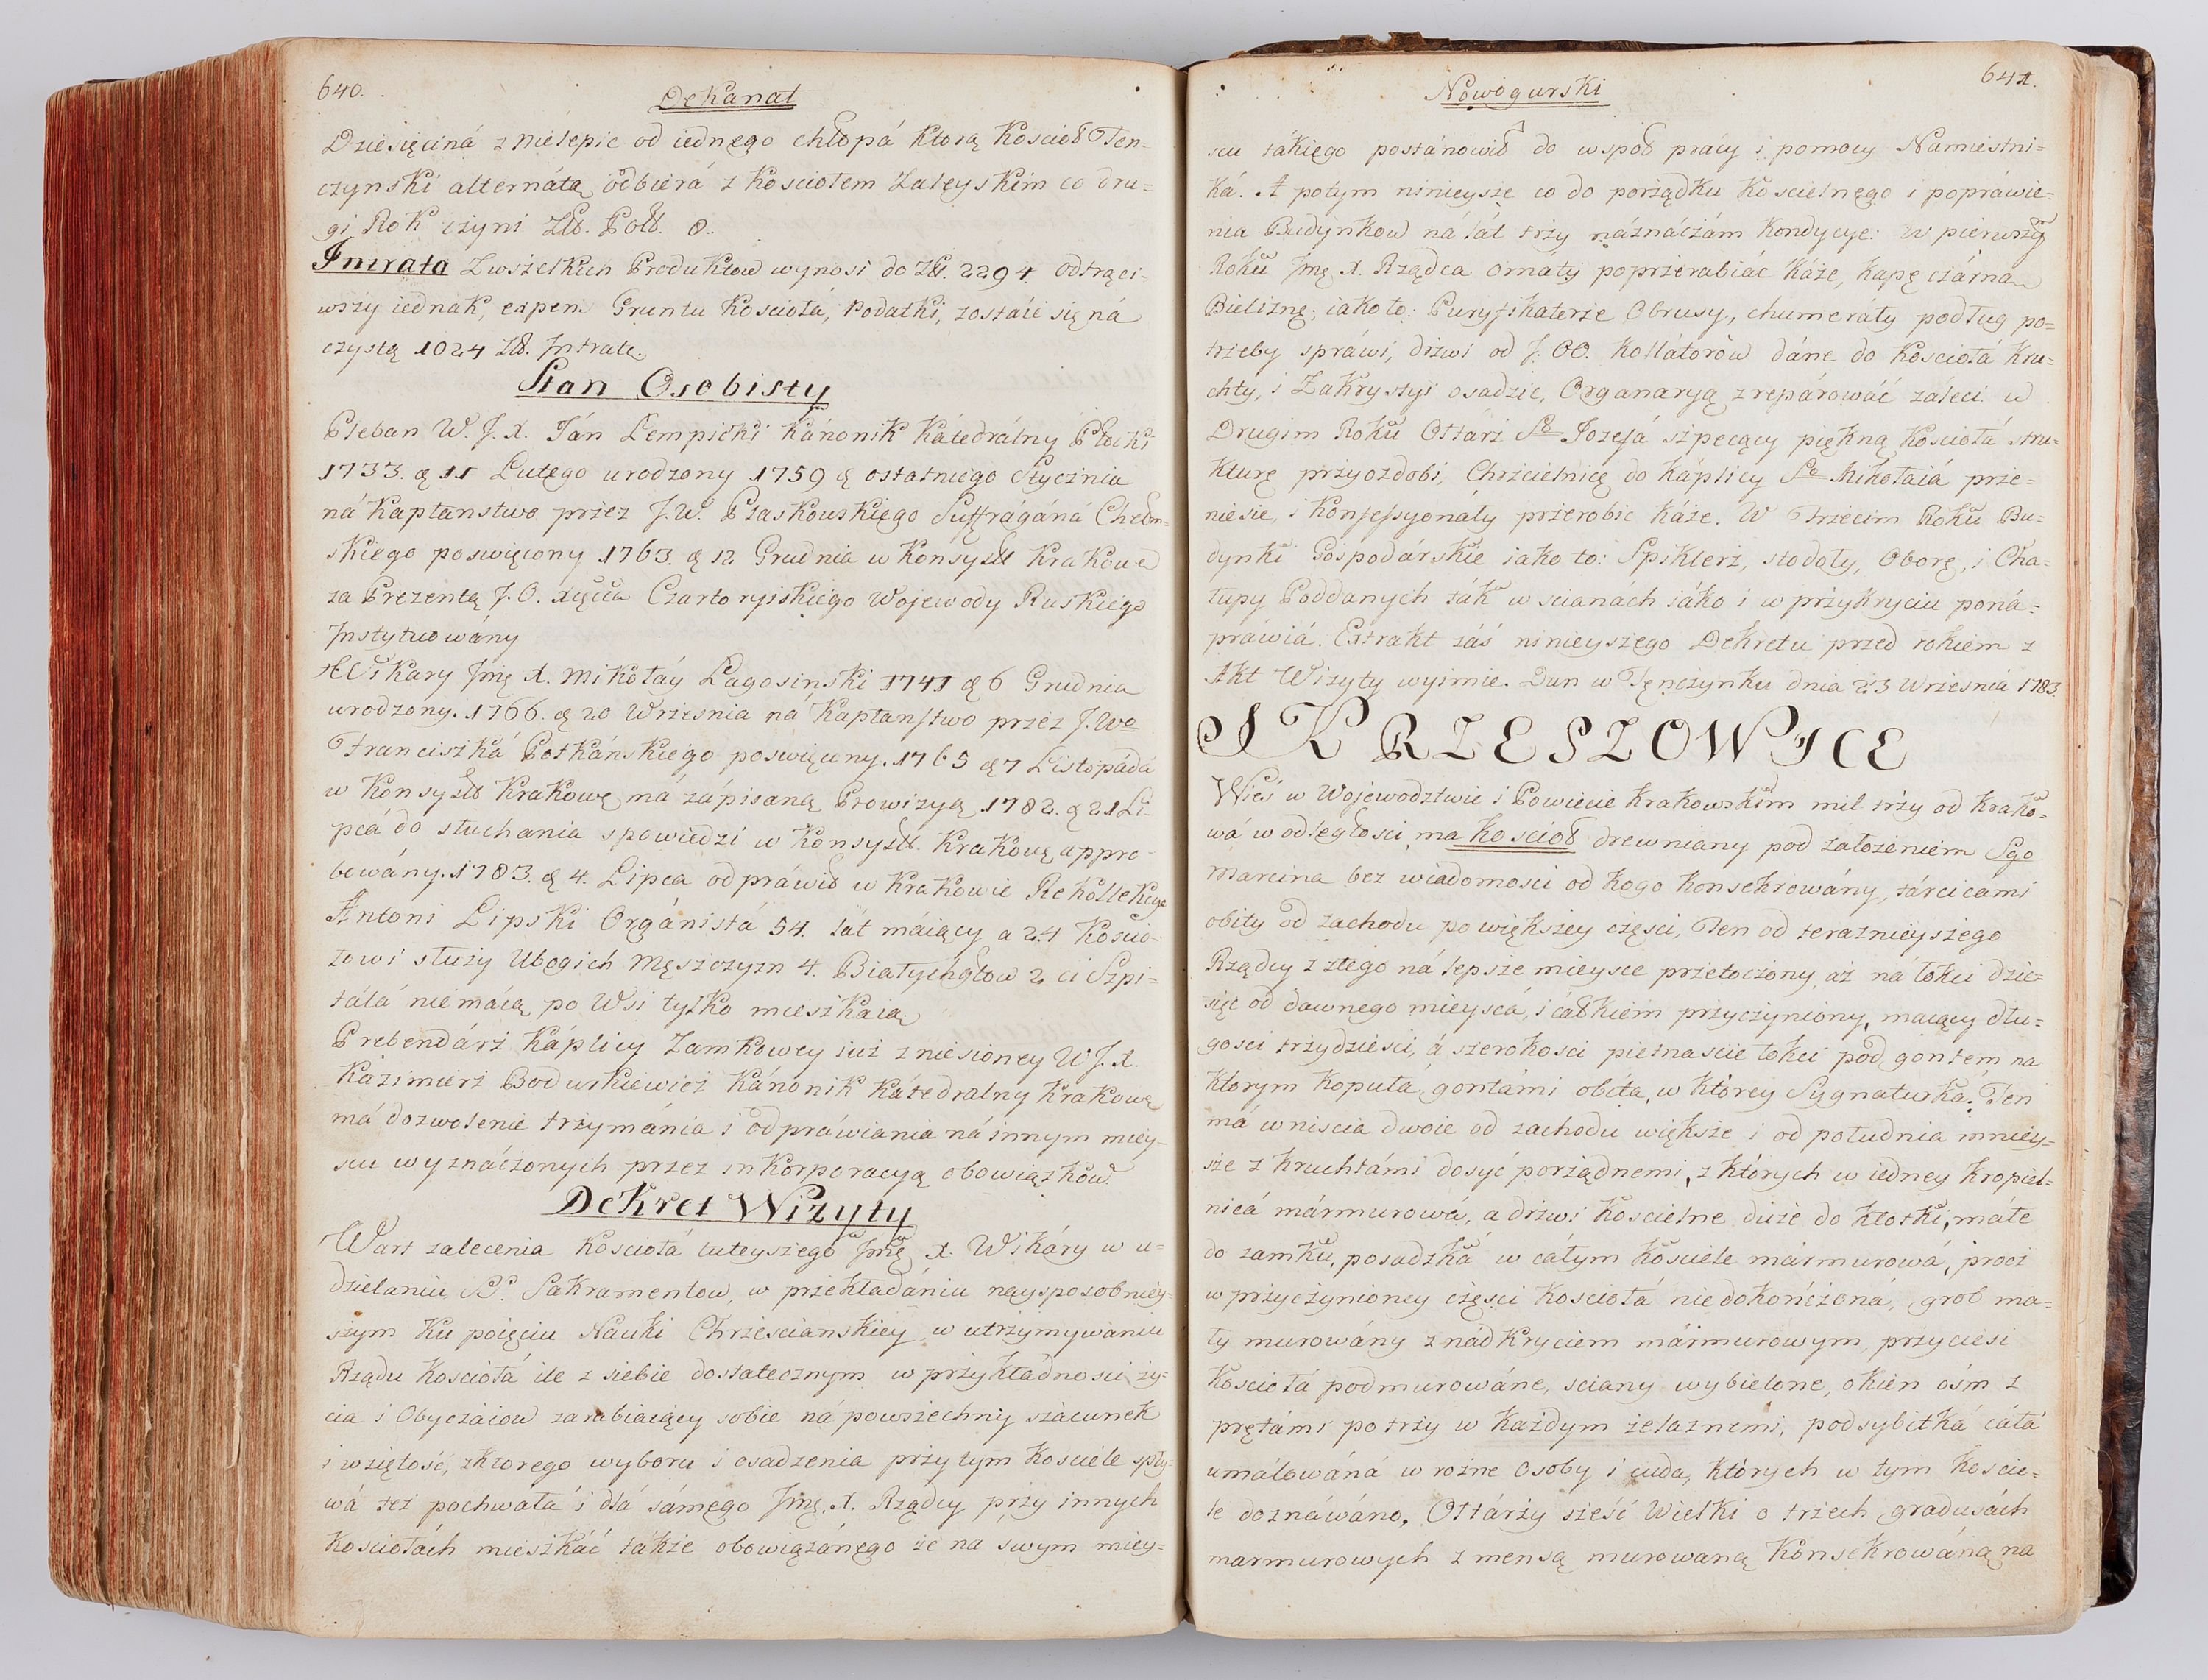 640.
Dekanat
Dziesięciná z Mietepic od iednego chłopá ktorą Koscioł Ten-
czynski alternátą odbierá z Kosciołem Zaleyskim co dru=
gi Rok czyni Zł. Pol. 8.
Intrata Zwszelkich Produktow wynosi do Zł. 2294. odtrąci-
wszy iednak, expen. Gruntu Kosciołá, Podatki, zostáie się ná
czystą 1024 Zł. Intratę.
Stan Osobisty
Pleban W. J. X. Ján Łempicki Kánonik Kátedrálny Płocki
1733. d 11 Lutego urodzony 1759 d ostatniego Stycznia
ná Kapłanstwo przez J.W. Płaskowskięgo Suffrágáná Chełm=
skiego poswięcony 1763. d 12 Grudnia w Konsyst. Krakowe
za Prezentą J.O. Xięcia Czartoryiskiego Wojewody Ruskiego
Instytuowány
Wikary Jmę X. Mikołáy Łagosinski 1741 d 6 Grudnia
urodzony. 1766. d 20 Wrzesnia ná Kapłanstwo przez J.Wo
Franciszká Potkánskiego poswięcony. 1765 d 7 Listopádá
w Konsyst. Krakowę ma zápisaną Prowizyą 1782. d 21 Li-
pcá do słuchania spowiedzi w Konsyst. Krakowę appro-
bowány. 1783. d 4. Lipca odpráwił w Krakowie Rekollekcye
Antoni Lipski Orgánistá 54. lát máiący a 24 Koscio-
łowi służy Ubogich Męszczyzn 4. Białychgłow 2 ci Szpi-
tálá nie máią po Wsi tylko mieszkáią
Prebendárz Káplicy Zamkowey iuż zniesioney W J. X.
Kazimierz Bodurkiewicz Kánonik Kátedralny Krakowę
má dozwolenie trzymánia i odpráwiania ná innym miey-
scu wyznáczonych przez inkorporacyą obowiązków.
Dekret Wizyty
Wart zalecenia Kosciołá tuteyszego Jmę X. Wikáry w u=
dzielaniu SS. Sakramentow, w przekładániu nąysposobniey=
szym ku poięciu Nauki Chrzescianskiey w utrzymywaniu
Rządu Kosciołá ile z siebie dostatecznym w przykłádnosci ży=
cia i Obyczáiow zarabiáiący sobie ná powszechny szácunek
i wziętość, zktorego wyboru i osadzenia przy tym Kosciele spły-
wá też pochwałá i dlá sámego Jmę. X. Rządcy, przy innych
Kosciołách mieszkáć tákże obowiązánego że na swym miey=
641.
Nowogurski
scu tákiego postánowił do wspoł pracy i pomocy Namiestni=
ká. A potym ninieysze co do porządku Koscielnego i popráwie=
nia Budynkow ná lát trzy náznáczám Kondycye: W pierwszy
Roku Jmę X. Rządca Ornáty poprzerabiác káże, kapę czárną
Bieliznę, iako to: Puryfikaterze Obrusy, chumeráły podług po=
trzeby spráwi, drzwi od J. OO. Kollátorów dáne do Kosciołá Kru=
chty, i Zakrystyi osadzic, Organaryą zrepárowáć záleci w
Drugim Roku Ołtarz So Jozefá szpecący piękną Kosciołá stru=
kturę przyozdobi, Chrzcielnicę do káplicy So Mikołaiá prze=
niesie, i Konfessyonáły przerobic káże. W Trzecim Roku Bu=
dynki Gospodárskie iako to: Spiklerz, stodoły, Oborę, i Cha=
łupy Poddanych ták w scianách iáko i w przykryciu poná=
práwiá. Extrakt záś ninieyszego Dekretu przed rokiem z
Akt Wizyty wyimie. Dan w Tęnczynku dnia 23 Wrzesnia 1783.
SKRZESZOWICE
Wieś w Wojewodztwie i Powiecie Krakowskim mil trzy od Krako=
wá w odległosci, ma koscioł drewniany pod założeniem Sgo
Marcina bez wiadomosci od kogo konsekrowány, tárcicami
obity od zachodu po większey częsci, Ten od teraznieyszego
Rządcy z złego ná lepsze mieysce przetoczony aż ná łokci dzie=
sięc od dawnego mieyscá, i całkiem przyczyniony, maiący dłu=
gosci trzydziesci, á szerokosci piętnascie łokci pod gontem na
ktorym kopuła, gontámi obita, w którey Sygnaturka. Ten
má wniscia dwoie od zachodu większe i od południa mniey=
sze z kruchtámi dosyć porządnemi, z których w iedney kropiel=
nicá mármurowá, a drzwi koscielne duże do kłotki, máłe
do zamku, posadzká w cáłym kosciele mármurowá, procz
w przyczynioney częsci Kosciołá niedokończoná, grob ma=
ły murowány z nádkryciem mármurowym, przyciesi
Kosciołá podmurowáne, sciany wybielone, okien ośm z
prętámi po trzy w każdym żelaznemi, podsybitká cáłá
umálowáná w rożne Osoby i cuda, których w tym Koscie=
le doznáwáno, Ołtárzy szesć Wielki o trzech gradusách
marmurowych z mensą murowaną Konsekrowáną na